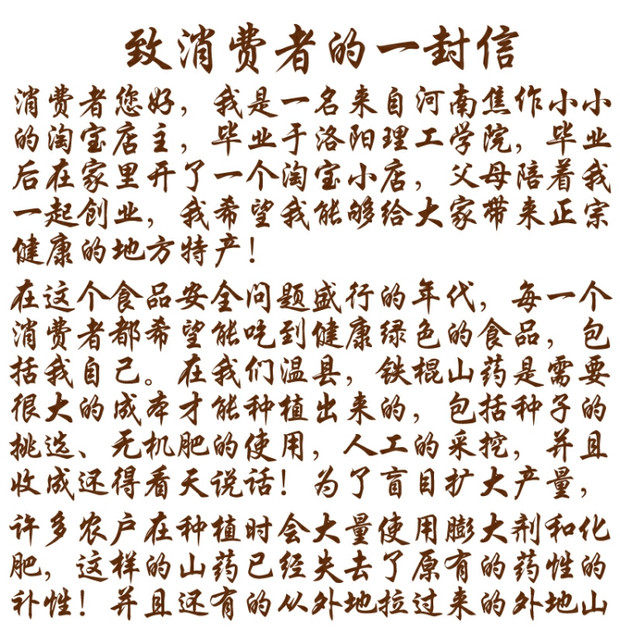 致消费者的一封信
消费者您好，我是一名来自河南焦作小小
的淘宝店主，毕业于洛阳理工学院，毕业
后在家里开了一个淘宝小店，父母陪着我
一起创业，我希望我能够给大家带来正宗
健康的地方特产！
在这个食品安全问题盛行的年代，每一个
消费者都希望能吃到健康绿色的食品，包
括我自己。在我们温县，铁棍山药是需要
很大的成本才能种植出来的，包括种子的
挑选、无机肥的使用，人工的采挖，并且
收成还得看天说话！为了盲目扩大产量，
许多农户在种植时会大量使用膨大剂和化
肥，这样的山药已经失去了原有的药性的
补性！并且还有的从外地拉过来的外地山